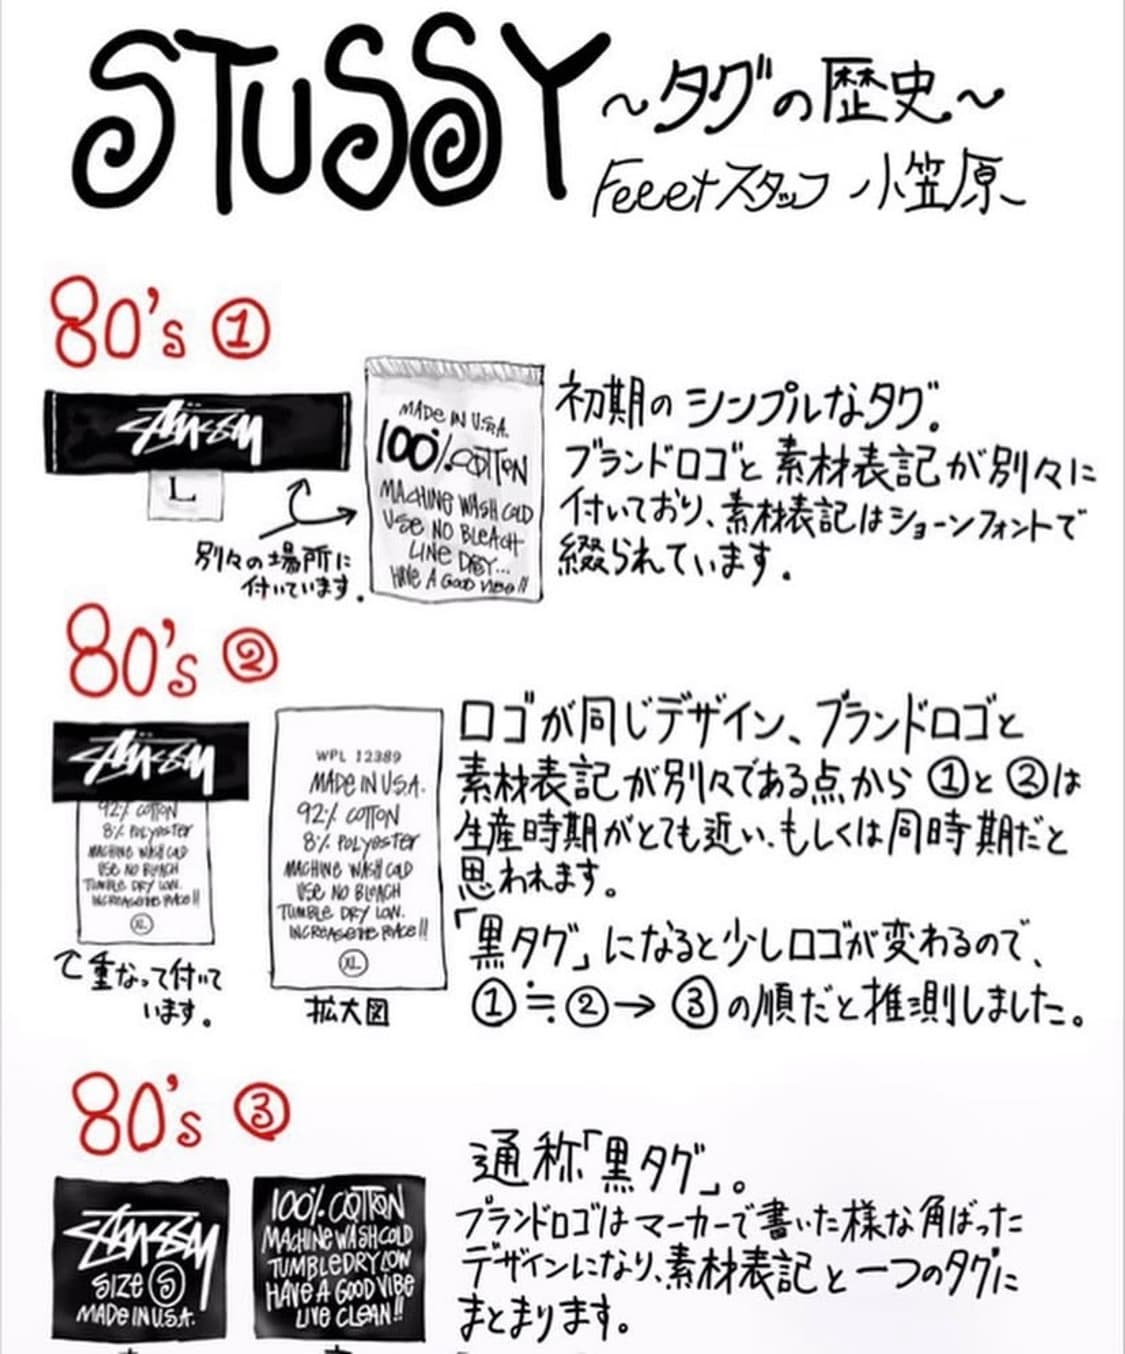 STUSSY
〜タグの歴史〜
Feeetスタッフ 小笠原
80's ①
STÜSSY
L
別々の場所に
付いています.
MADE IN U.S.A.
100% COTTON
MACHINE WASH COLD
USE NO BLEACH
LINE DRY...
HAVE A GOOD VIBE!!
初期のシンプルなタグ。
ブランドロゴと素材表記が別々に
付いており、素材表記はショーンフォントで
綴られています.
80's ②
STÜSSY
92% COTTON
8% POLYESTER
MACHINE WASH COLD
USE NO BLEACH
TUMBLE DRY LOW.
INCREASE THE PEACE!!
XL
て重なって付いて
います。
WPL 12389
MADE IN U.S.A.
92% COTTON
8% POLYESTER
MACHINE WASH COLD
USE NO BLEACH
TUMBLE DRY LOW.
INCREASE THE PEACE!!
XL
拡大図
ロゴが同じデザイン、ブランドロゴと
素材表記が別々である点から①と②は
生産時期がとても近い、もしくは同時期だと
思われます。
「黒タグ」になると少しロゴが変わるので、
①≒②→③の順だと推測しました。
80's ③
STÜSSY
SIZE S
MADE IN U.S.A.
100% COTTON
MACHINE WASH COLD
TUMBLE DRY LOW
HAVE A GOOD VIBE
LIVE CLEAN!!
通称「黒タグ」。
ブランドロゴはマーカーで書いた様な角ばった
デザインになり、素材表記と一つのタグに
まとまります。